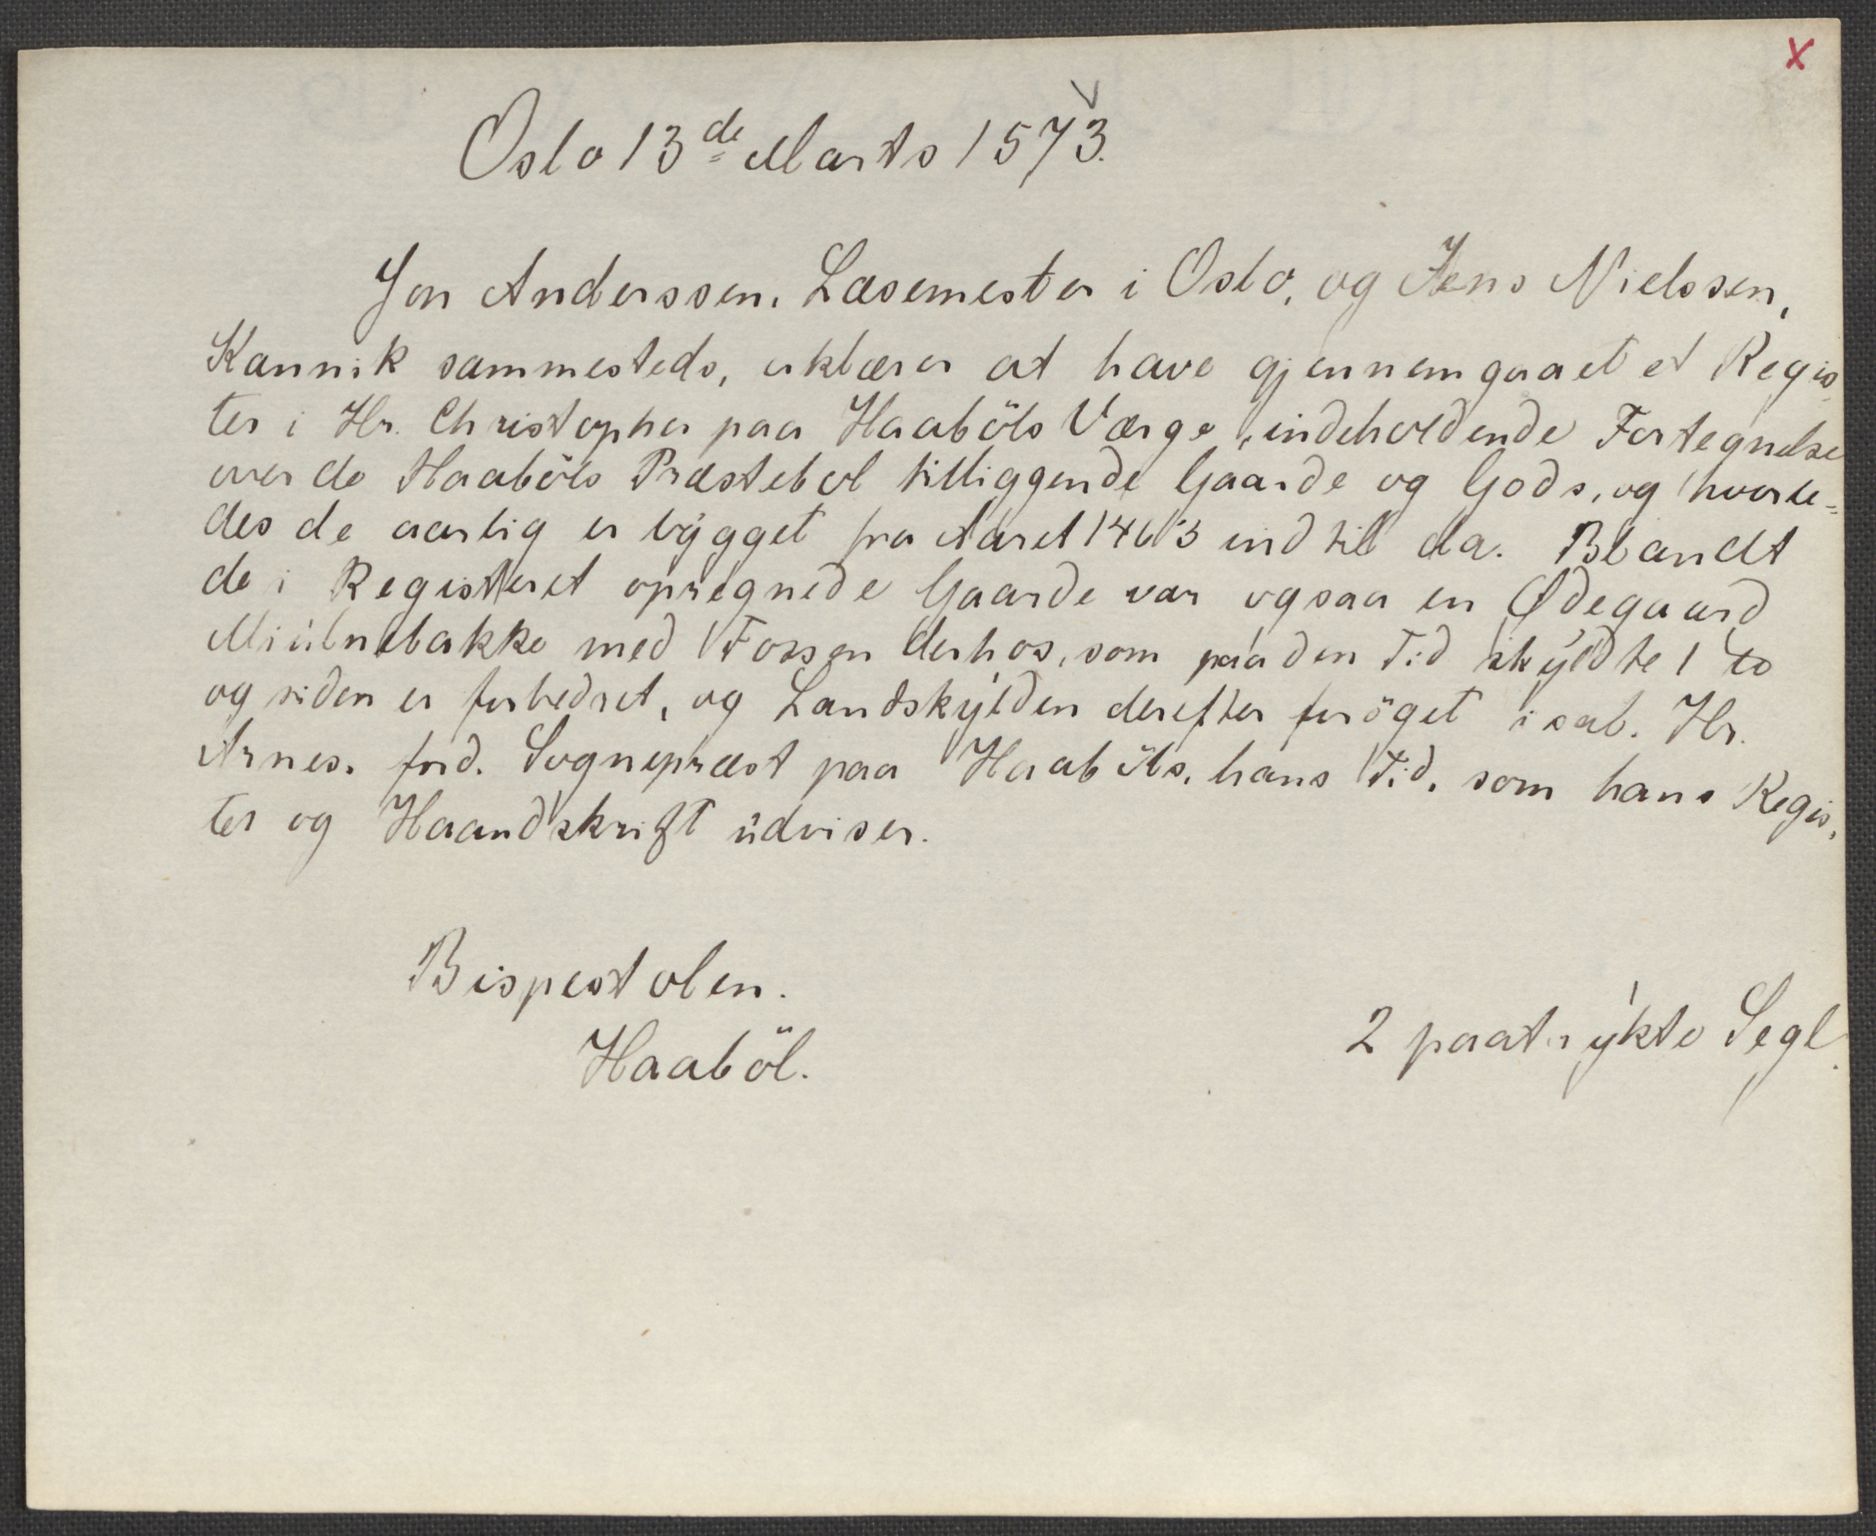 x
Oslo 13de Marts 1573.
Jon Anderssen, Læsemester i Oslo, og Jens Nielssen,
Kannik sammesteds, erklærer at have gjennemgaaet et Regis-
ter i Hr. Christopher paa Haaböls Værge, indeholdende Fortegnelse
over de Haaböls Præstebol tilliggende Gaarde og Gods, og hvorle=
des de aarlig er bÿgget fra Aaret 1463 ind til da. Blandt
de i Registeret opregnede Gaarde var ogsaa en Ødegaard
Miülnebakke med Fossen derhos, som paa den Tid skÿldte 1
og siden er forbedret, og Landskÿlden derefter foröget i sal. Hr.
Arnes, ford. Sognepræst paa Haaböls, hans Tid, som hans Regis-
ter og Haandskrift üdviser.
Bispestolen.
Haaböl.
2 paatrÿkte Segl.